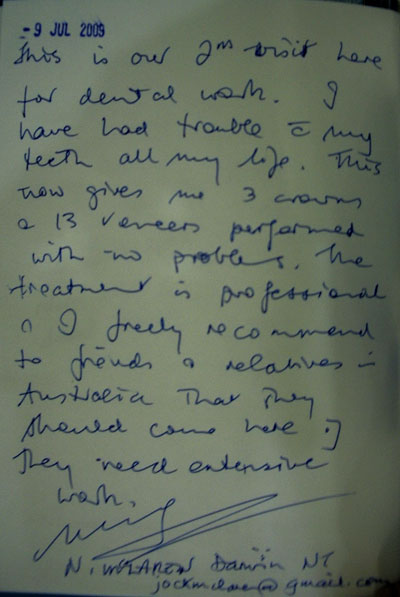 - 9 JUL 2009
This is our 2nd visit here
for dental work. I
have had trouble c̄ my
teeth all my life. This
now gives me 3 crowns
& 13 veneers performed
with no problems. The
treatment is professional
& I freely recommend
to friends & relatives in
Australia that they
should come here if
they need extensive
work.
N. Darwin NT
@gmail.com